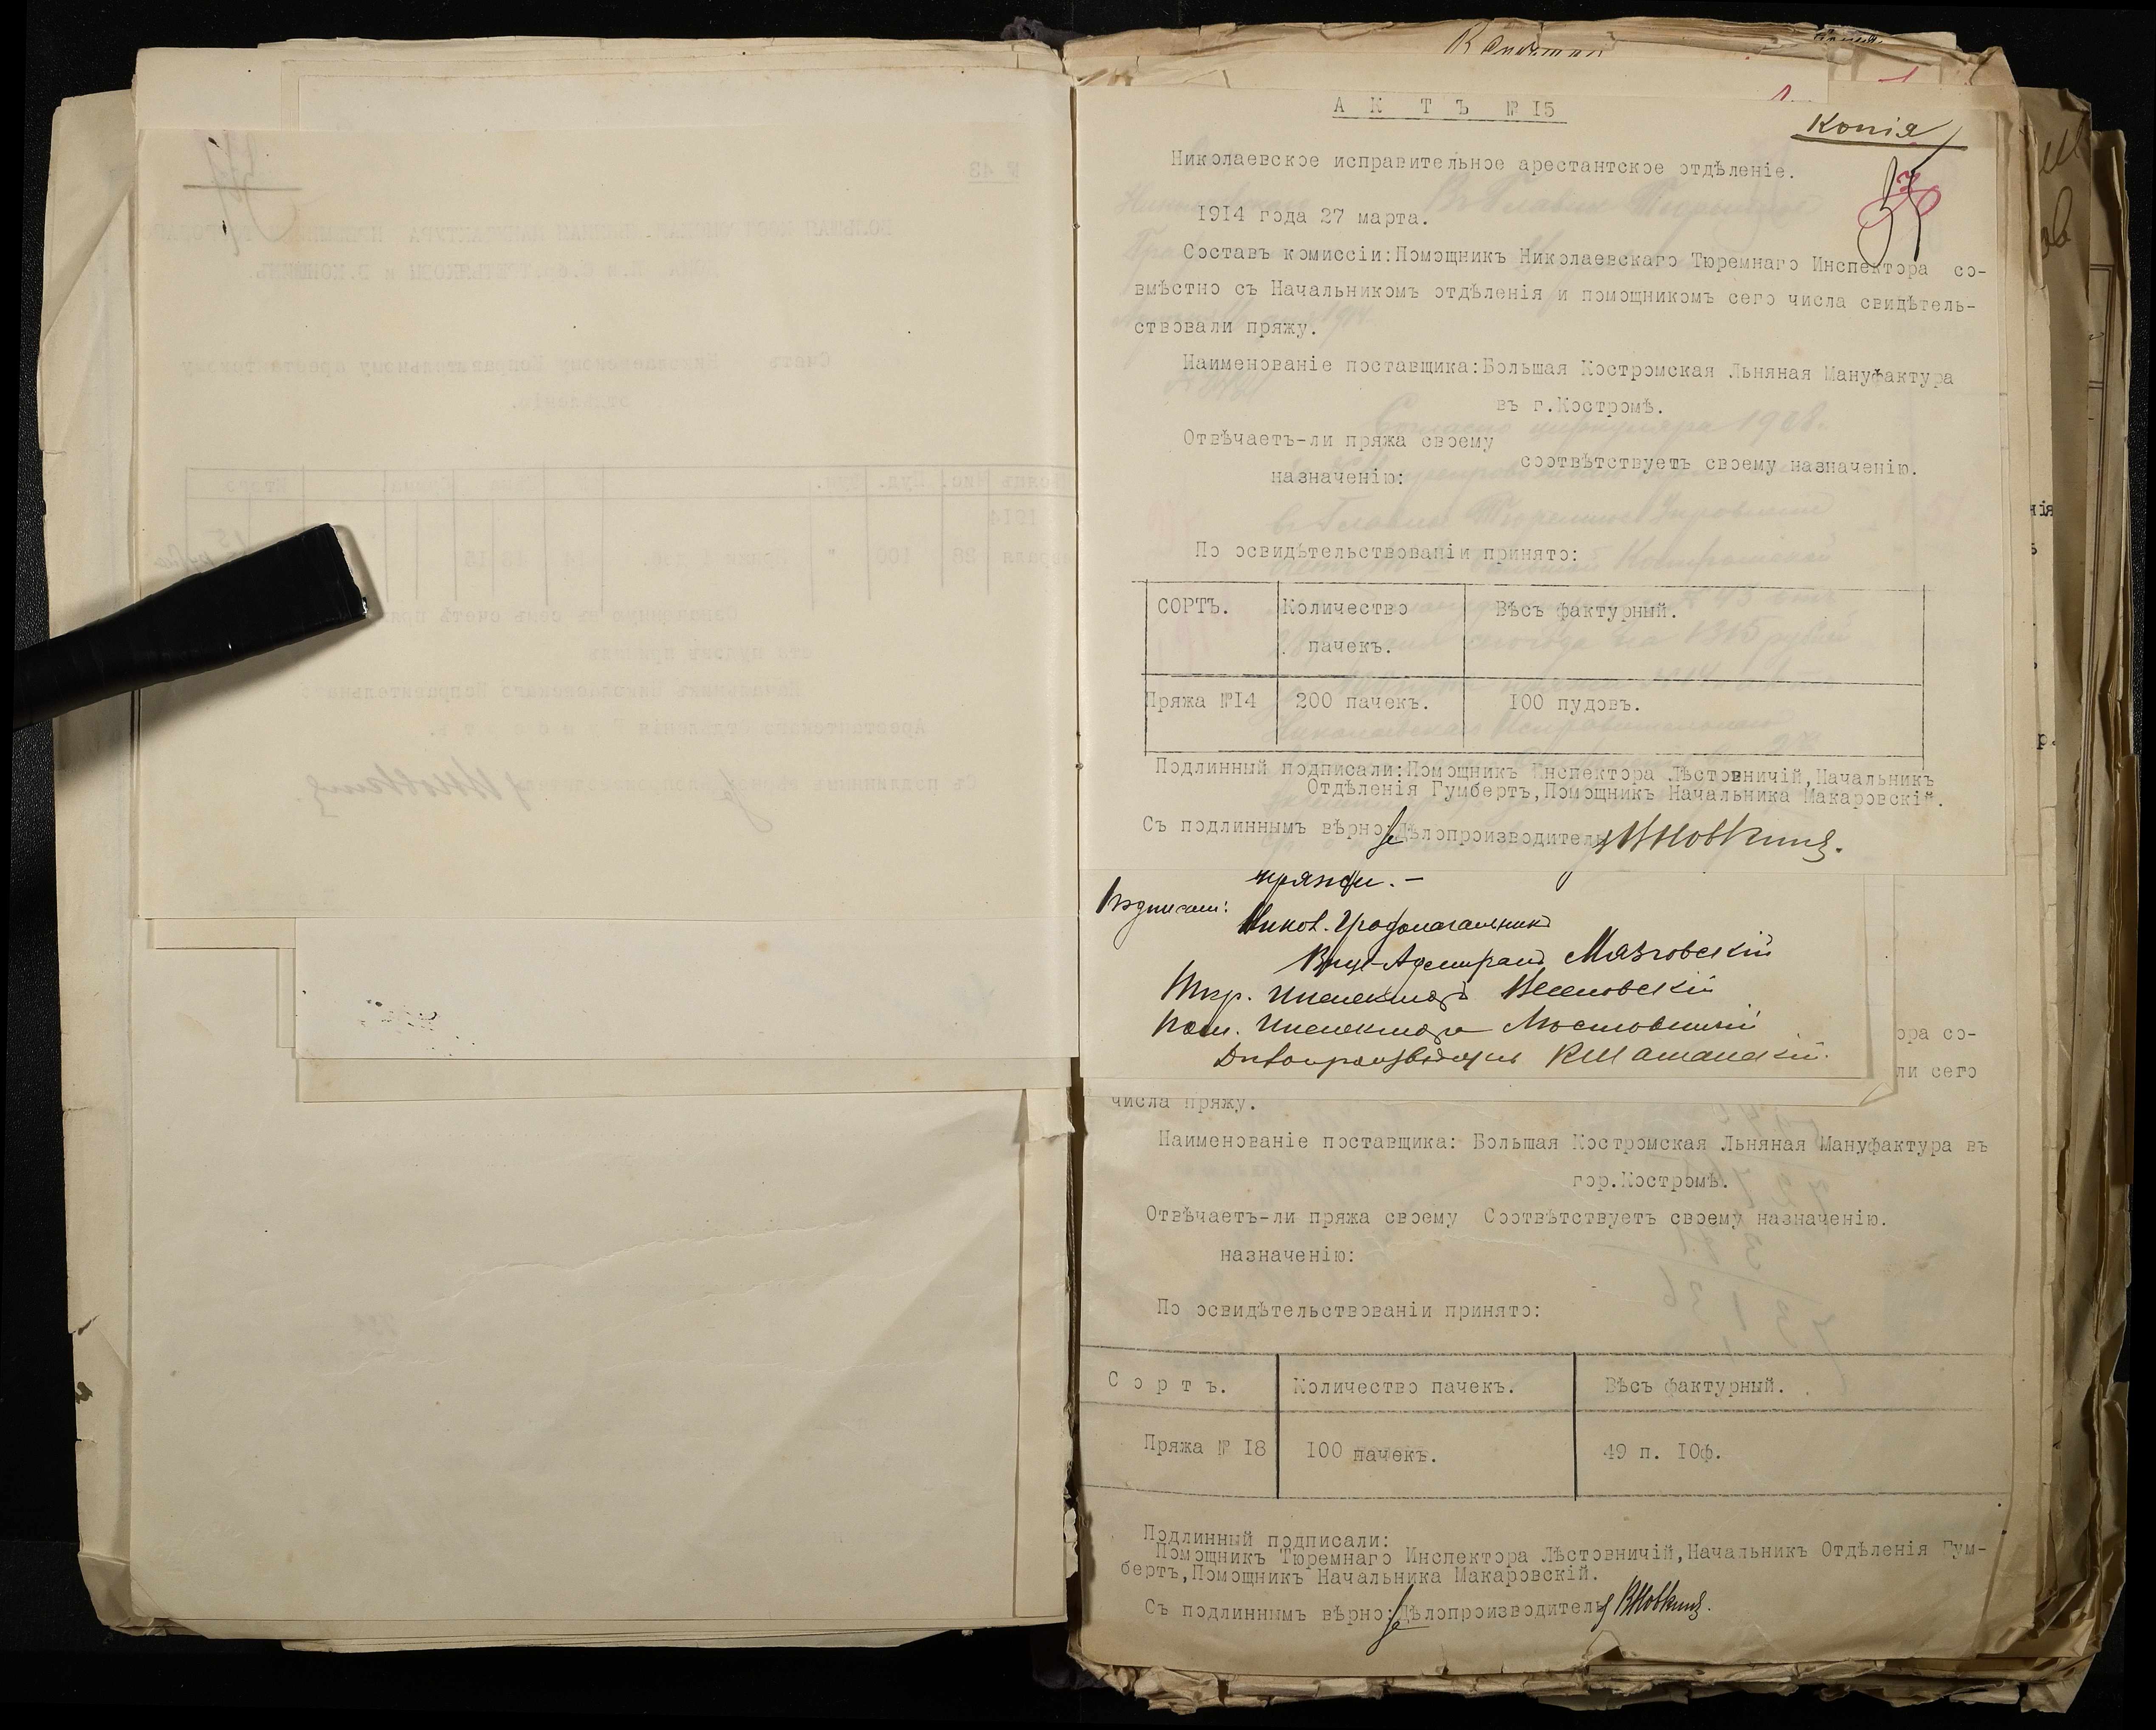 А К Т Ъ № 15
Копія
Николаевское исправительное арестантское отдѣленіе.
1914 года 27 марта.
Составъ комиссіи:Помощникъ Николаевскаго Тюремнаго Инспектора со-
вмѣстно съ Начальникомъ отдѣленія и помощникомъ сего числа свидѣтель-
ствовали пряжу.
Наименованіе поставщика:Большая Костромская Льняная Мануфактура
въ г.Костромѣ.
Отвѣчаетъ-ли пряжа своему
соотвѣтствуетъ своему назначенію.
назначенію:
По освидѣтельствованіи принято:
СОРТЪ. Количество Вѣсъ фактурный.
пачекъ.
Пряжа №14 200 пачекъ. 100 пудовъ.
Подлинный подписали:Помощникъ Инспектора Лѣстовничій,Начальникъ
Отдѣленія Гумбертъ,Помощникъ Начальника Макаровскій.
Съ подлиннымъ вѣрно:Дѣлопроизводитель
пряжи.-
Подписали: Никол. Градоначальникъ
Вице-Адмиралъ Мязговскій
Тюр. Инспекторъ
Пом. Инспектора
Дѣлопроизводитель
ора со-
ли сего
числа пряжу.
Наименованіе поставщика: Большая Костромская Льняная Мануфактура въ
гор.Костромѣ.
Отвѣчаетъ-ли пряжа своему Соотвѣтствуетъ своему назначенію.
назначенію:
По освидѣтельствованіи принято:
С о р т ъ. Количество пачекъ. Вѣсъ фактурный.
Пряжа № 18 100 пачекъ. 49 п. 10ф.
Подлинный подписали:
Помощникъ Тюремнаго Инспектора Лѣстовничій,Начальникъ Отдѣленія Гум-
бертъ,Помощникъ Начальника Макаровскій.
Съ подлиннымъ вѣрно:Дѣлопроизводитель